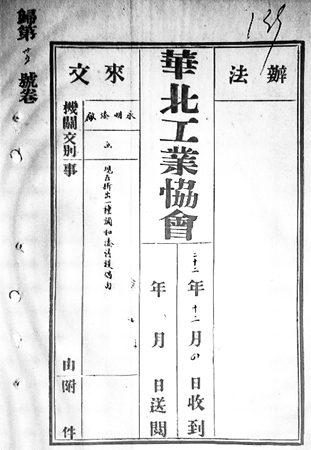 139
辦法
華北工業協會
二十二年十二月 日收到
年 月 日送閱
來文
機關文別事由附件
永明漆廠
函
現在新出一種調和漆請提倡由
歸第 號卷